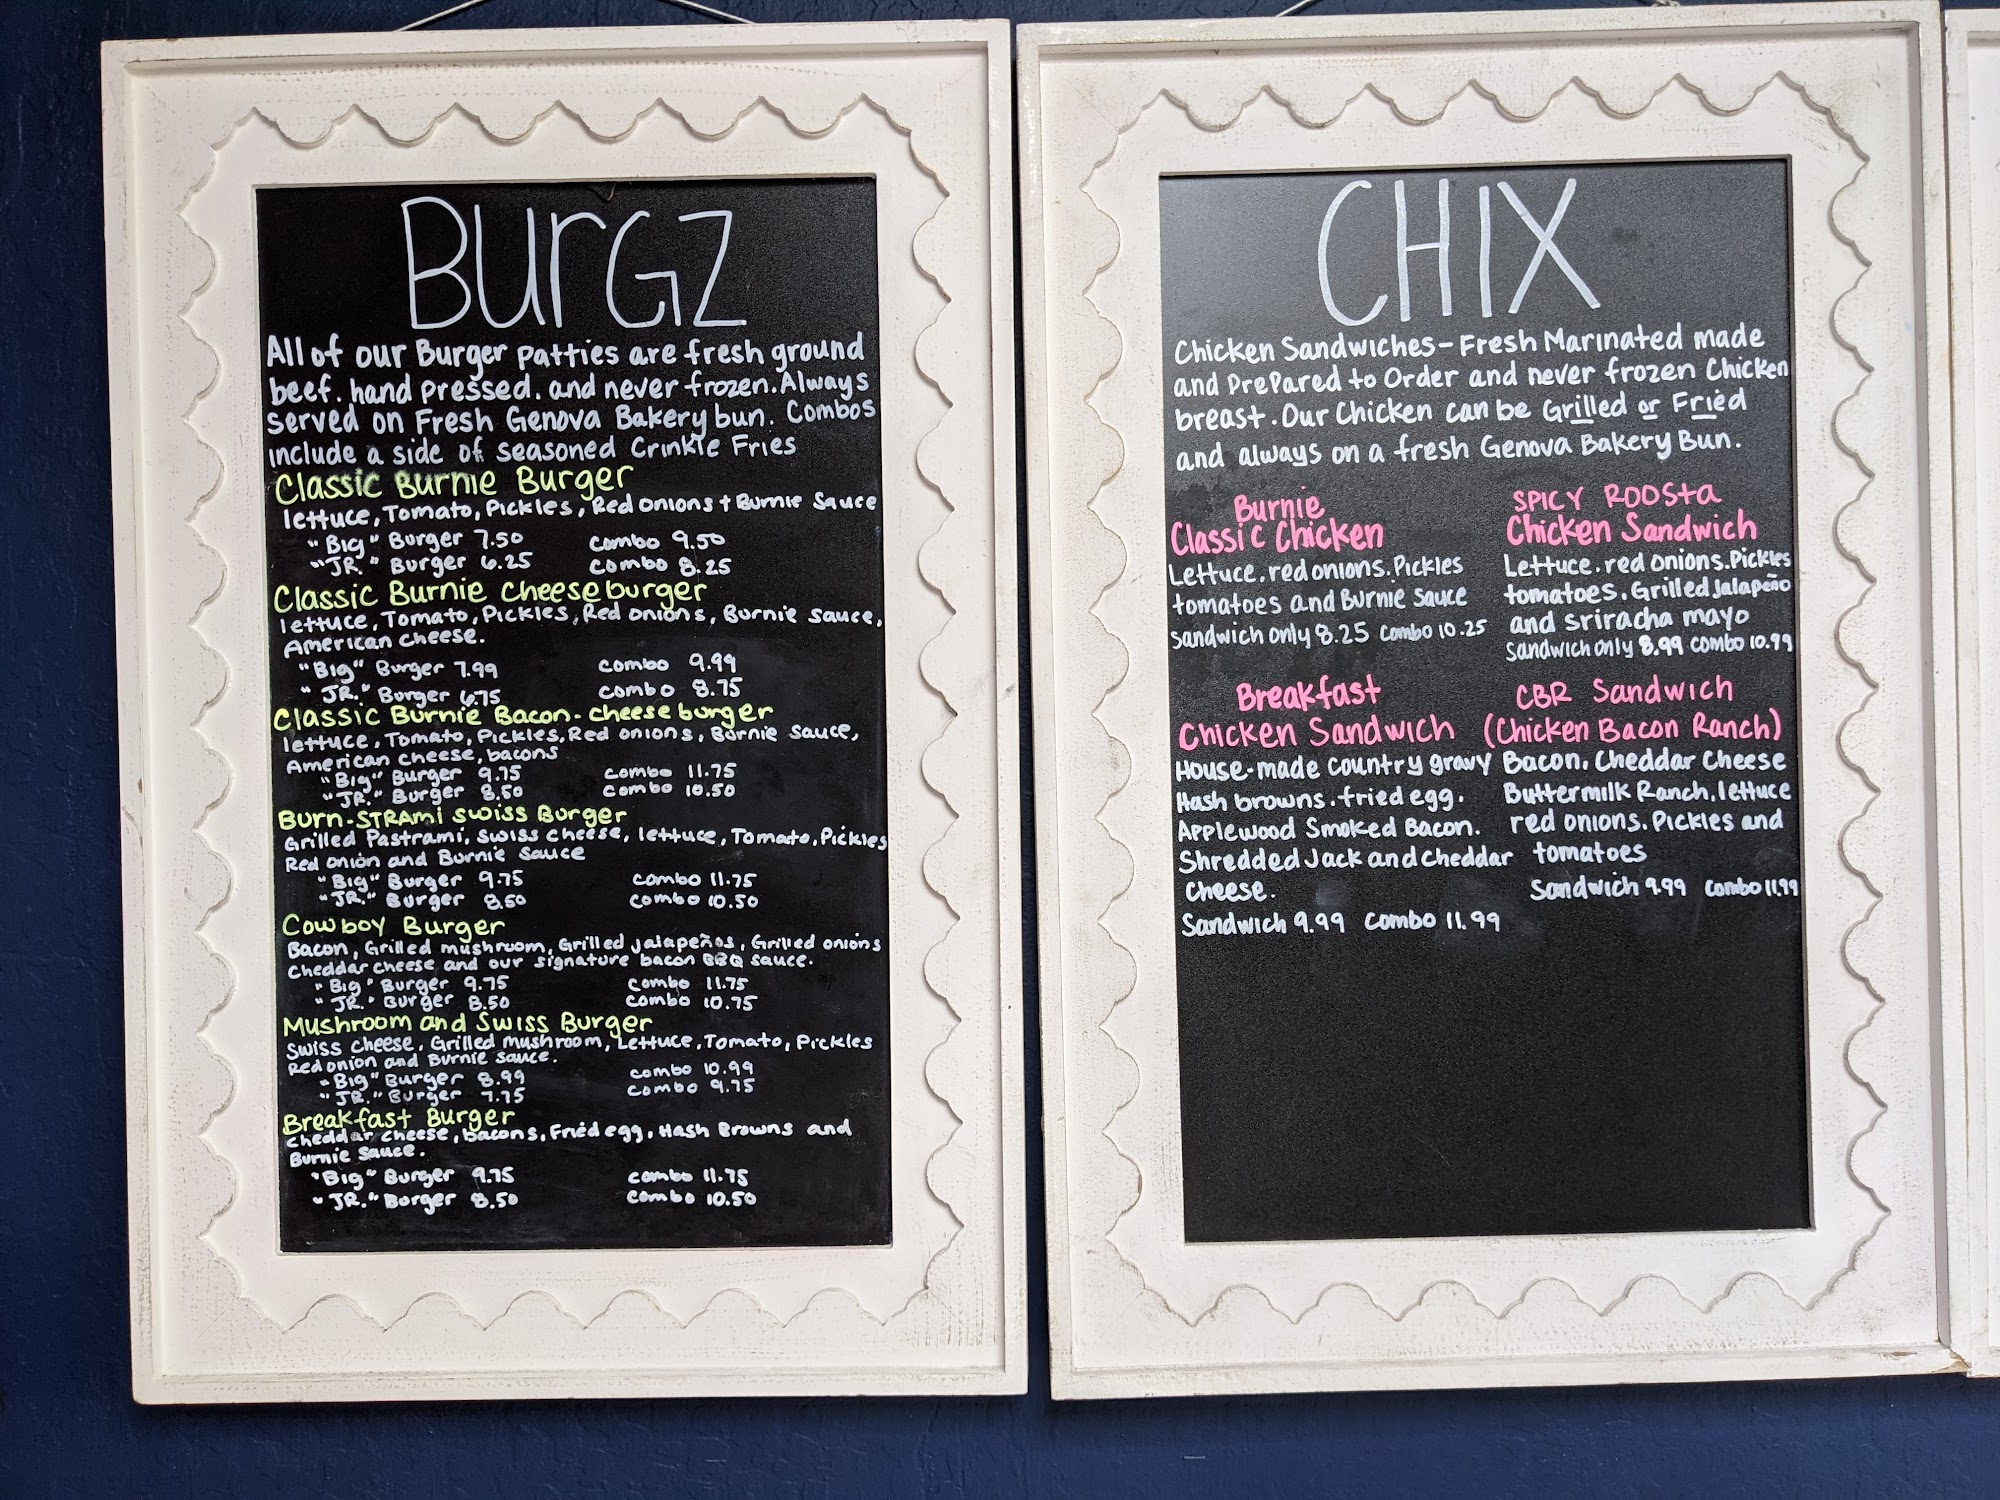 BurGZ
All of our Burger patties are fresh ground
beef. hand pressed. and never frozen. Always
served on Fresh Genova Bakery bun. Combos
include a side of seasoned Crinkle Fries
Classic Burnie Burger
lettuce, Tomato, Pickles, Red onions + Burnie Sauce
"Big" Burger 7.50 combo 9.50
"JR." Burger 6.25 combo 8.25
Classic Burnie Cheeseburger
lettuce, Tomato, Pickles, Red onions, Burnie sauce,
American cheese.
"Big" Burger 7.99 combo 9.99
"JR." Burger 6.75 combo 8.75
Classic Burnie Bacon-cheeseburger
lettuce, Tomato, Pickles, Red onions, Burnie sauce,
American cheese, bacons
"Big" Burger 9.75 combo 11.75
"JR." Burger 8.50 combo 10.50
Burn-STRAmi swiss Burger
Grilled Pastrami, swiss cheese, lettuce, Tomato, Pickles
Red onion and Burnie Sauce
"Big" Burger 9.75 combo 11.75
"JR." Burger 8.50 combo 10.50
Cowboy Burger
Bacon, Grilled mushroom, Grilled jalapeños, Grilled onions
Cheddar cheese and our signature bacon BBQ sauce.
"Big" Burger 9.75 combo 11.75
"JR." Burger 8.50 combo 10.75
Mushroom and Swiss Burger
Swiss cheese, Grilled mushroom, Lettuce, Tomato, Pickles
Red onion and Burnie sauce.
"Big" Burger 8.99 combo 10.99
"JR." Burger 7.75 combo 9.75
Breakfast Burger
cheddar cheese, bacons, Fried egg, Hash Browns and
Burnie sauce.
"Big" Burger 9.75 combo 11.75
"JR." Burger 8.50 combo 10.50
CHIX
Chicken Sandwiches - Fresh Marinated made
and prepared to Order and never frozen Chicken
breast. Our Chicken can be Grilled or Fried
and always on a fresh Genova Bakery Bun.
Burnie
Classic Chicken
Lettuce. red onions. Pickles
tomatoes and Burnie Sauce
Sandwich only 8.25 combo 10.25
SPICY ROOSta
Chicken Sandwich
Lettuce. red onions. Pickles
tomatoes. Grilled jalapeño
and sriracha mayo
Sandwich only 8.99 combo 10.99
Breakfast
Chicken Sandwich
House-made country gravy
Hash browns. fried egg.
Applewood Smoked Bacon.
Shredded Jack and Cheddar
Cheese.
Sandwich 9.99 Combo 11.99
CBR Sandwich
(Chicken Bacon Ranch)
Bacon. Cheddar Cheese
Buttermilk Ranch. lettuce
red onions. Pickles and
tomatoes
Sandwich 9.99 Combo 11.99